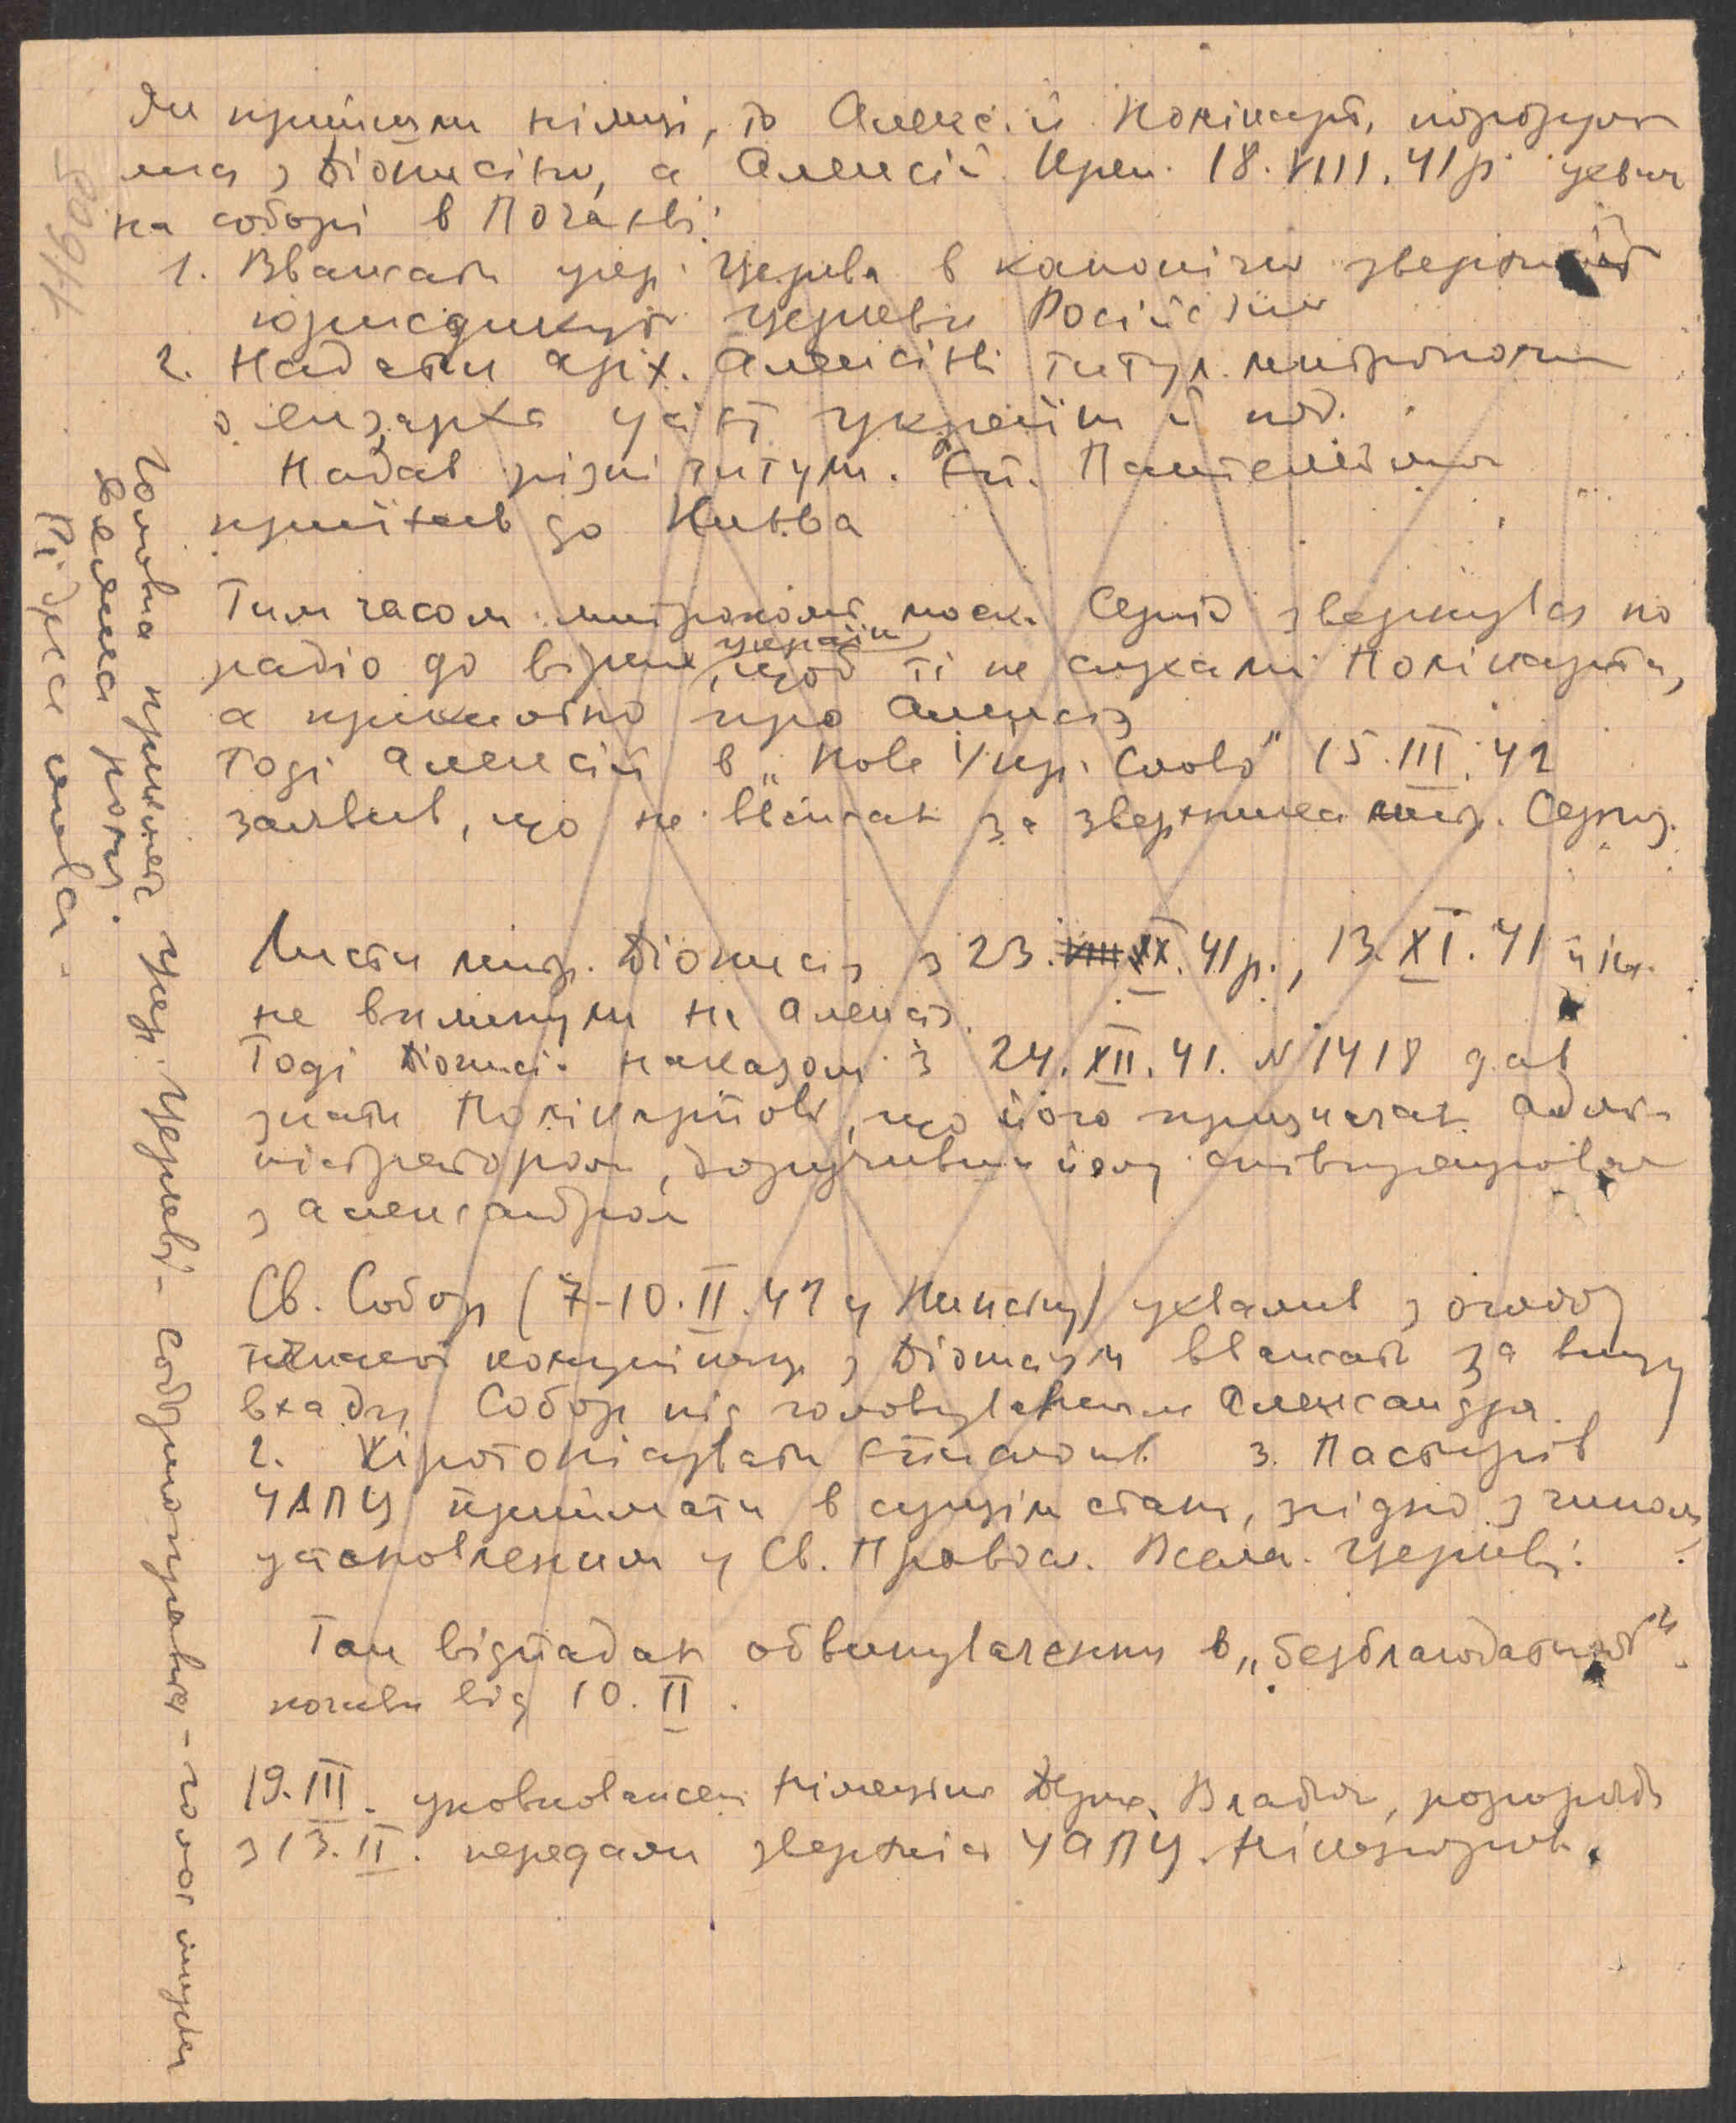 Як прийшли німці, то Алексій. Полікарп, порозум
мця з Діонисієм, а Алексій Крем. 18.VIII.41 р. ухвал
на соборі в Почаєві:
1. Вважати укр. Церкву в канонічн зверхній
юрисдикції церкви Російської
2. Надати арх. Алексієві титул митрополи
екзарха усієї України й под.
Надав різні титули. Єп. Пантелеймон
приїхав до Києва
Тим часом митрополит моск. Сергій звернувся по
радіо до вірних україн, щоб ті не слухали Полікарпа,
а прихильно про Алексія
Тоді Алексій в „Нове Укр. Слово" 15.III.42
заявив, що не вважає за зверхника митр. Сергія.
Листи митр. Діонисія з 23.IX.41 р., 13.XI.41 й ін.
не вплинули на Алексія.
Тоді Діонисі. наказом з 24.XII.41. N 1418 дав
знати Полікарпові, що його призначає адмі
ністратором, доручивши йому співпрацювати
з Александром
Св. Собор (7-10.II.42 у Пинську) ухвалив з огляду
комунікації з Діонисієм вважати за вищу
владу Собор під головуванням Александра.
2. Хіротонізувати єпископів. 3. Пастирів
УАПЦ приймати в сущім стані, згідно з чином,
установленим у Св. Правосл. Всел. Церкві.
Так відпадає обвинувачення в „безблагодатності"
почавши від 10.II.
19.III. уповноважен Німецької Держ. Влади, розпоряд
з 13.II. передали зверхніст УАПЦ. Никанорові.
Головна прикмета укр. Церкви - соборноправність - голос
велика роля.
Рідна мова.